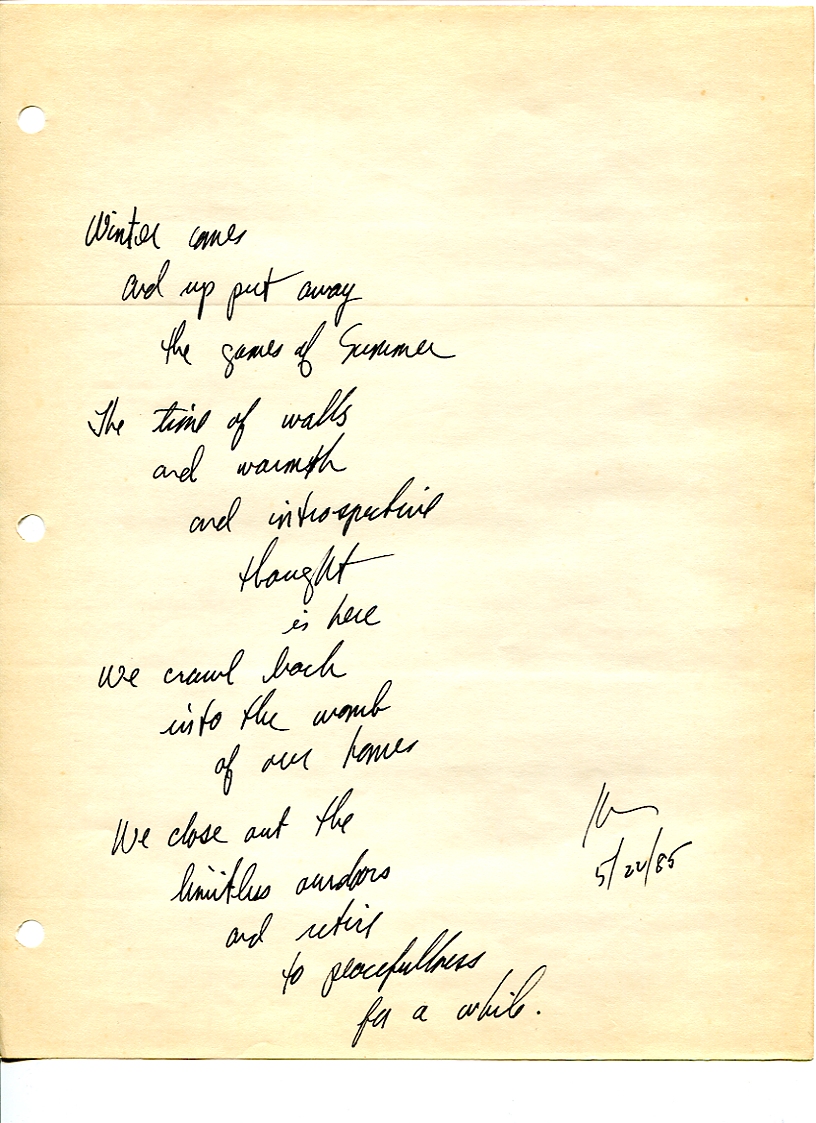 Winter comes
and up put away
the games of Summer
The time of walls
and warmth
and introspective
thought
is here
We crawl back
into the womb
of our homes
We close out the
limitless ourdoors
and retire
to peacefullness
for a while.
5/22/85